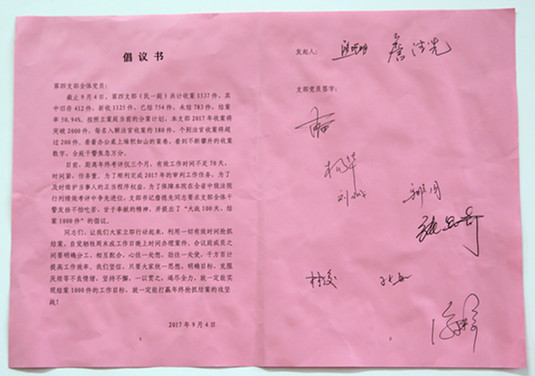 倡议书
第四支部全体党员：
截止9月4日，第四支部（民一庭）共计收案1537件，其
中旧存412件，新收1125件，已结754件，未结783件，结案
率50.94%。按照立案庭当前的分案计划，本支部2017年收案将
突破2000件，每名入额法官收案约180件，个别法官收案将超
过200件。看着办公桌上堆积如山的案卷，看到不断攀升的收案
数字，全庭干警焦急万分。
目前，距离年终考评仅三个月，有效工作时间不足70天，
时间紧，任务重。为了顺利完成2017年的审判工作任务，为了
及时维护当事人的正当程序权益，为了保障本院在全省中级法院
行列绩效考评中争先进位，支部书记詹德先同志要求支部全体干
警发扬不怕吃苦、甘于奉献的精神，并提出了“大战100天、结
案1000件”的倡议。
同志们，让我们大家立即行动起来，利用一切有效时间抢抓
结案，自觉牺牲周末或工作日晚上时间办理案件，合议庭成员之
间要明确分工、相互配合，心往一处想，劲往一处使，千方百计
提高工作效率。我们坚信，只要大家统一思想，明确目标，克服
厌烦等不良情绪，坚持不懈，一以贯之，竭尽全力，就一定能实
现结案1000件的工作目标，就一定能打赢年终抢抓结案的攻坚
战！
2017年9月4日
发起人：
支部党员签字：